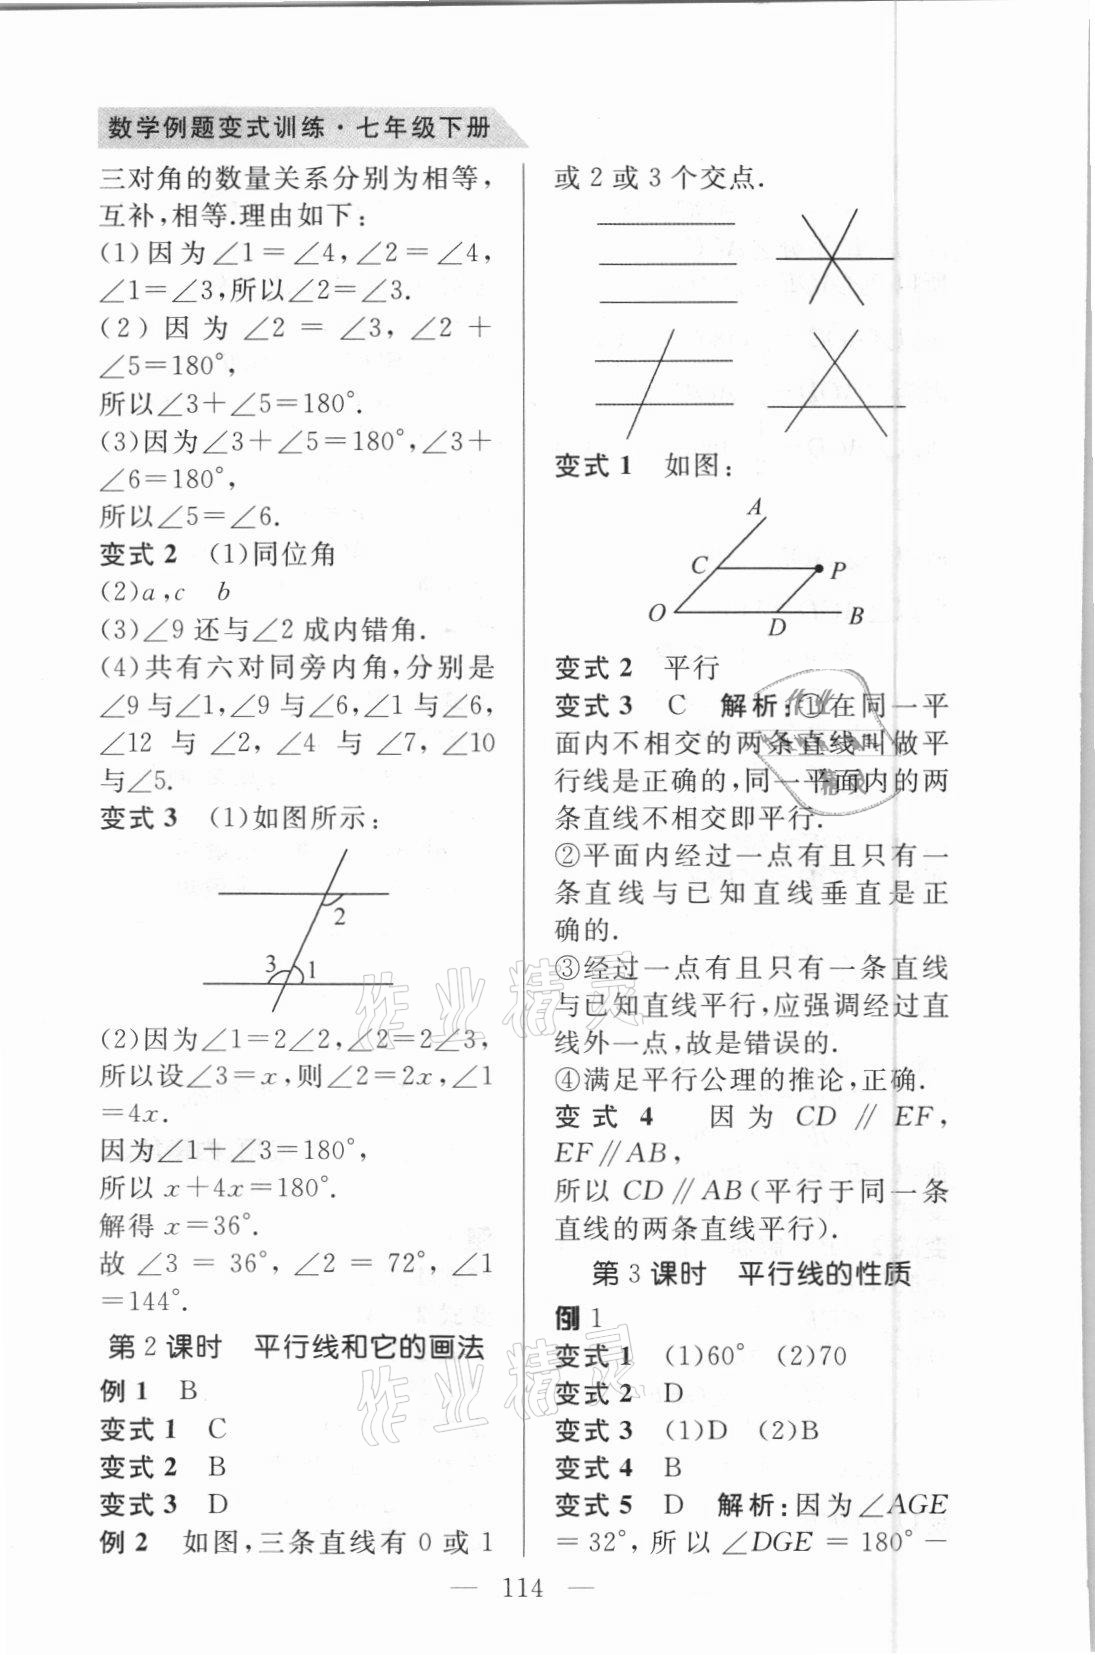 数学例题变式训练·七年级下册
三对角的数量关系分别为相等,
互补,相等.理由如下:
(1)因为∠1=∠4,∠2=∠4,
∠1=∠3,所以∠2=∠3.
(2)因为∠2=∠3,∠2+
∠5=180°,
所以∠3+∠5=180°.
(3)因为∠3+∠5=180°,∠3+
∠6=180°,
所以∠5=∠6.
变式2 (1)同位角
(2)a,c b
(3)∠9还与∠2成内错角.
(4)共有六对同旁内角,分别是
∠9与∠1,∠9与∠6,∠1与∠6,
∠12与∠2,∠4与∠7,∠10
与∠5.
变式3 (1)如图所示:
2
3
1
(2)因为∠1=2∠2,∠2=2∠3,
所以设∠3=x,则∠2=2x,∠1
=4x.
因为∠1+∠3=180°,
所以x+4x=180°.
解得x=36°.
故∠3=36°,∠2=72°,∠1
=144°.
第2课时 平行线和它的画法
例1 B
变式1 C
变式2 B
变式3 D
例2 如图,三条直线有0或1
或2或3个交点.
变式1 如图:
A
C
P
O
D
B
变式2 平行
变式3 C 解析:①在同一平
面内不相交的两条直线叫做平
行线是正确的,同一平面内的两
条直线不相交即平行.
②平面内经过一点有且只有一
条直线与已知直线垂直是正
确的.
③经过一点有且只有一条直线
与已知直线平行,应强调经过直
线外一点,故是错误的.
④满足平行公理的推论,正确.
变式4 因为CD∥EF,
EF∥AB,
所以CD∥AB(平行于同一条
直线的两条直线平行).
第3课时 平行线的性质
例1
变式1 (1)60° (2)70
变式2 D
变式3 (1)D (2)B
变式4 B
变式5 D 解析:因为∠AGE
=32°,所以∠DGE=180°-
— 114 —
作业精灵
作业精灵